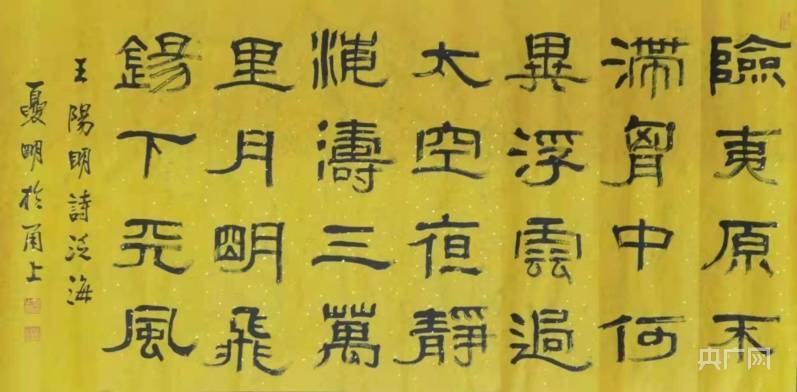 險夷原不
滯胷中何
異浮雲過
太空夜靜
海濤三萬
里月明飛
錫下天風
王陽明詩泛海
明於甬上
央广网